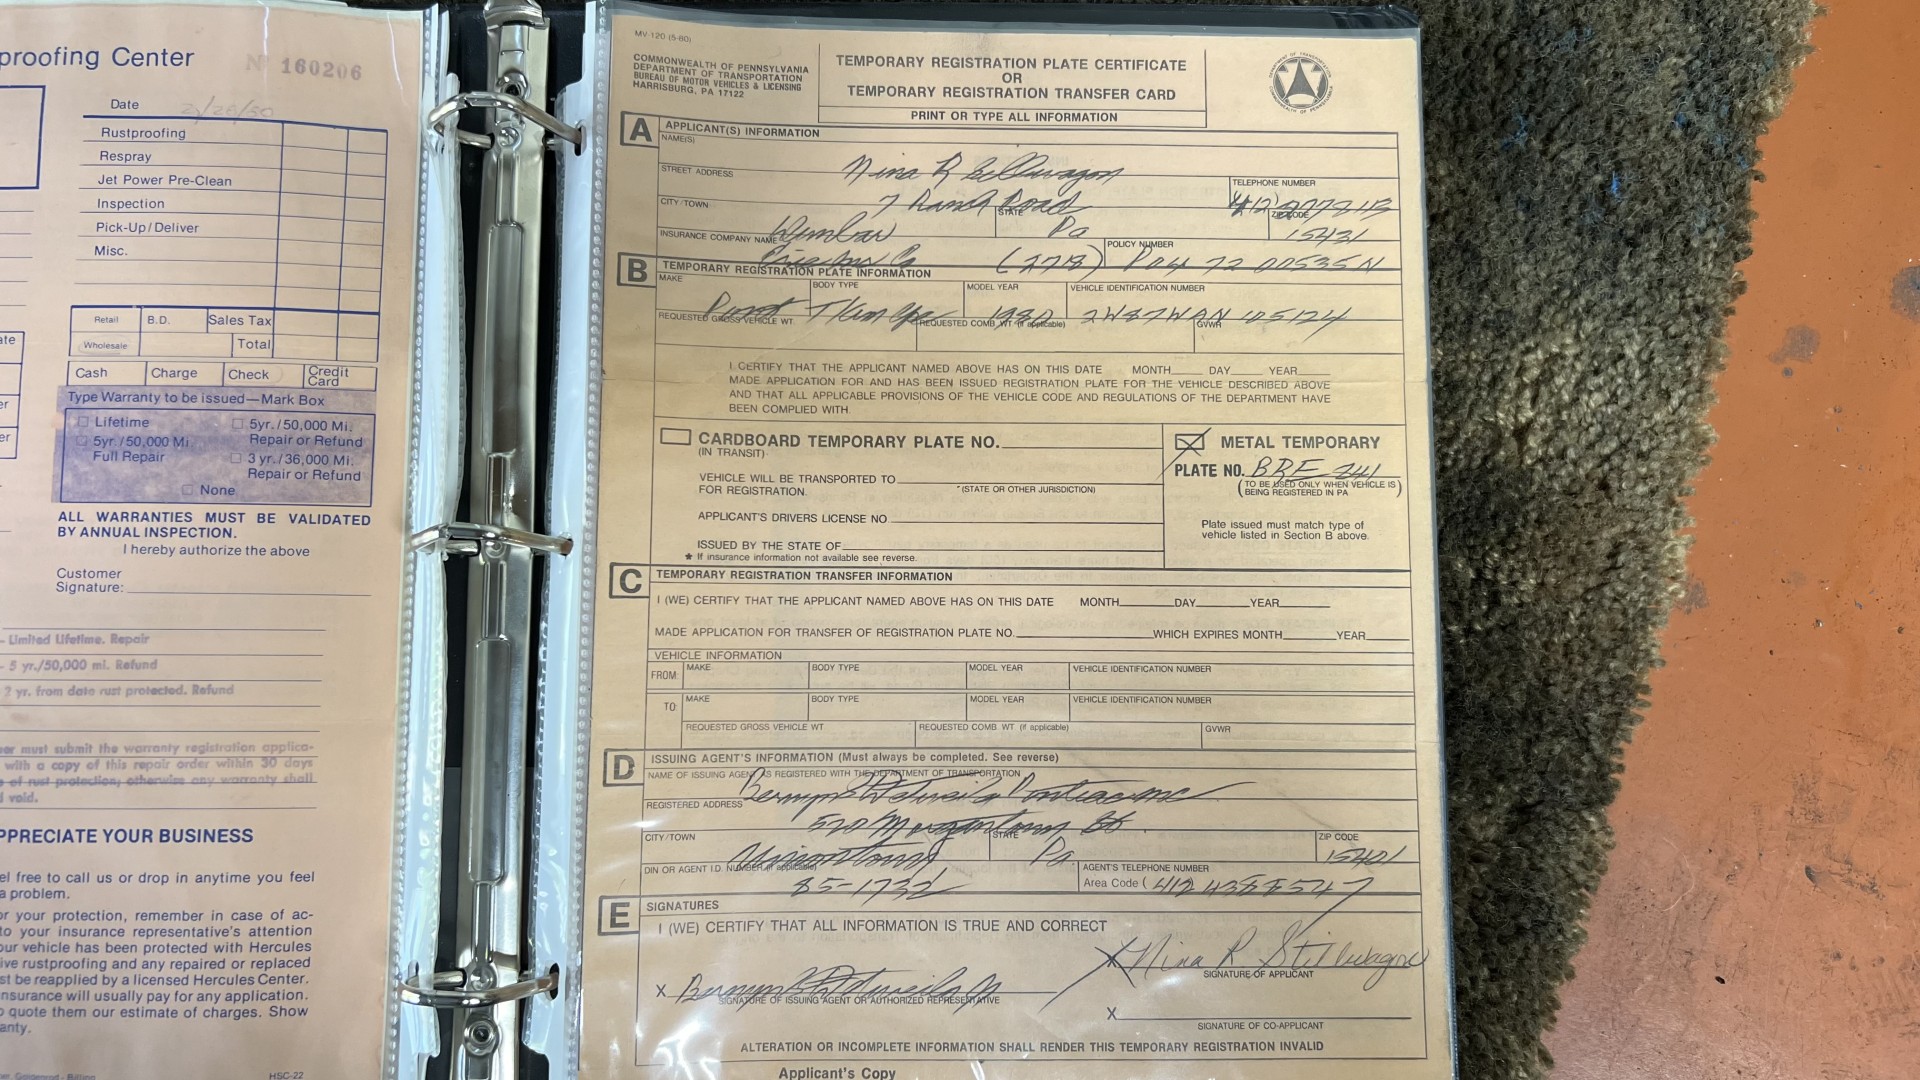 proofing Center
No 160206
Date 2/26/80
Rustproofing
Respray
Jet Power Pre-Clean
Inspection
Pick-Up/Deliver
Misc.
Retail B.D. Sales Tax
Wholesale Total
Cash Charge Check Credit Card
Type Warranty to be issued—Mark Box
Lifetime
5yr./50,000 Mi.
Full Repair
5yr./50,000 Mi.
Repair or Refund
3 yr./36,000 Mi.
Repair or Refund
None
ALL WARRANTIES MUST BE VALIDATED
BY ANNUAL INSPECTION.
I hereby authorize the above
Customer
Signature:
- Limited Lifetime. Repair
- 5 yr./50,000 mi. Refund
2 yr. from date rust protected. Refund
must submit the warranty registration applica-
with a copy of this repair order within 30 days
of rust protection; otherwise any warranty shall
void.
PPRECIATE YOUR BUSINESS
el free to call us or drop in anytime you feel
a problem.
or your protection, remember in case of ac-
to your insurance representative's attention
our vehicle has been protected with Hercules
ive rustproofing and any repaired or replaced
st be reapplied by a licensed Hercules Center.
nsurance will usually pay for any application.
o quote them our estimate of charges. Show
anty.
Goldenrod - Billing
HSC-22
MV-120 (5-80)
COMMONWEALTH OF PENNSYLVANIA
DEPARTMENT OF TRANSPORTATION
BUREAU OF MOTOR VEHICLES & LICENSING
HARRISBURG, PA 17122
TEMPORARY REGISTRATION PLATE CERTIFICATE
OR
TEMPORARY REGISTRATION TRANSFER CARD
PRINT OR TYPE ALL INFORMATION
A APPLICANT(S) INFORMATION
NAME(S)
Nina R Stillwagon
STREET ADDRESS
7 Ranch Road
TELEPHONE NUMBER
CITY/TOWN Dunbar
STATE Pa
ZIP CODE 15431
INSURANCE COMPANY NAME Erie Ins Co (2718)
POLICY NUMBER P04 72 00535 N
B TEMPORARY REGISTRATION PLATE INFORMATION
MAKE Pont
BODY TYPE
MODEL YEAR 1980
VEHICLE IDENTIFICATION NUMBER 2W87WAN 105124
REQUESTED GROSS VEHICLE WT. REQUESTED COMB. WT (if applicable) GVWR
I CERTIFY THAT THE APPLICANT NAMED ABOVE HAS ON THIS DATE MONTH DAY YEAR
MADE APPLICATION FOR AND HAS BEEN ISSUED REGISTRATION PLATE FOR THE VEHICLE DESCRIBED ABOVE
AND THAT ALL APPLICABLE PROVISIONS OF THE VEHICLE CODE AND REGULATIONS OF THE DEPARTMENT HAVE
BEEN COMPLIED WITH
CARDBOARD TEMPORARY PLATE NO.
(IN TRANSIT)
VEHICLE WILL BE TRANSPORTED TO
FOR REGISTRATION. (STATE OR OTHER JURISDICTION)
APPLICANT'S DRIVERS LICENSE NO
ISSUED BY THE STATE OF
★ If insurance information not available see reverse.
METAL TEMPORARY
PLATE NO. BRE 241
(TO BE USED ONLY WHEN VEHICLE IS
BEING REGISTERED IN PA)
Plate issued must match type of
vehicle listed in Section B above.
C TEMPORARY REGISTRATION TRANSFER INFORMATION
I (WE) CERTIFY THAT THE APPLICANT NAMED ABOVE HAS ON THIS DATE MONTH DAY YEAR
MADE APPLICATION FOR TRANSFER OF REGISTRATION PLATE NO. WHICH EXPIRES MONTH YEAR
VEHICLE INFORMATION
FROM: MAKE BODY TYPE MODEL YEAR VEHICLE IDENTIFICATION NUMBER
TO MAKE BODY TYPE MODEL YEAR VEHICLE IDENTIFICATION NUMBER
REQUESTED GROSS VEHICLE WT REQUESTED COMB WT (if applicable) GVWR
D ISSUING AGENT'S INFORMATION (Must always be completed. See reverse)
NAME OF ISSUING AGENT AS REGISTERED WITH THE DEPARTMENT OF TRANSPORTATION
Pontiac Inc
REGISTERED ADDRESS
520 Morgantown St.
CITY/TOWN Uniontown
STATE Pa
ZIP CODE 15401
DIN OR AGENT I.D. NUMBER (if applicable) 85-1732
AGENT'S TELEPHONE NUMBER
Area Code (412 4388547
E SIGNATURES
I (WE) CERTIFY THAT ALL INFORMATION IS TRUE AND CORRECT
X Nina R. Stillwagon
SIGNATURE OF APPLICANT
X
SIGNATURE OF ISSUING AGENT OR AUTHORIZED REPRESENTATIVE
X
SIGNATURE OF CO-APPLICANT
ALTERATION OR INCOMPLETE INFORMATION SHALL RENDER THIS TEMPORARY REGISTRATION INVALID
Applicant's Copy